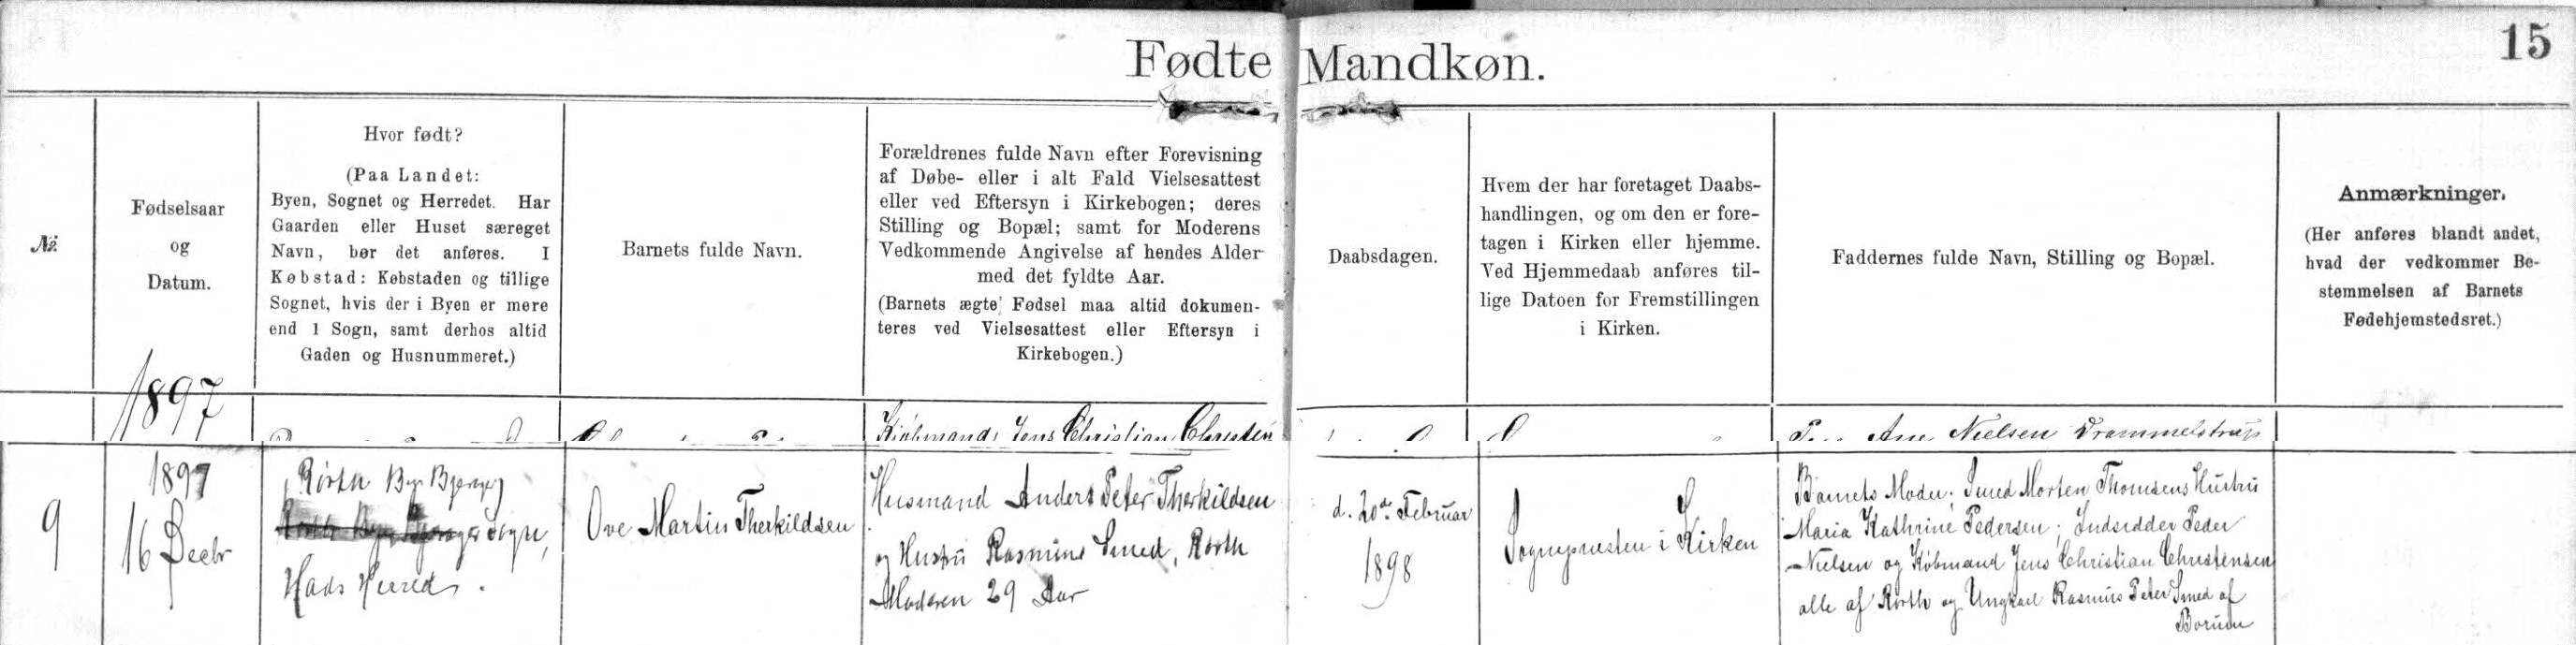 Fødte Mandkøn.
15
No.
Fødselsaar
og
Datum.
Hvor født?
(Paa Landet:
Byen, Sognet og Herredet. Har
Gaarden eller Huset særeget
Navn, bør det anføres. I
Købstad: Købstaden og tillige
Sognet, hvis der i Byen er mere
end 1 Sogn, samt derhos altid
Gaden og Husnummeret.)
Barnets fulde Navn.
Forældrenes fulde Navn efter Forevisning
af Døbe- eller i alt Fald Vielsesattest
eller ved Eftersyn i Kirkebogen; deres
Stilling og Bopæl; samt for Moderens
Vedkommende Angivelse af hendes Alder
med det fyldte Aar.
(Barnets ægte Fødsel maa altid dokumen-
teres ved Vielsesattest eller Eftersyn i
Kirkebogen.)
Daabsdagen.
Hvem der har foretaget Daabs-
handlingen, og om den er fore-
tagen i Kirken eller hjemme.
Ved Hjemmedaab anføres til-
lige Datoen for Fremstillingen
i Kirken.
Faddernes fulde Navn, Stilling og Bopæl.
Anmærkninger.
(Her anføres blandt andet,
hvad der vedkommer Be-
stemmelsen af Barnets
Fødehjemstedsret.)
1897
Kjøbmand Jens Christian Christen
Ane Nielsen Drammelstrup
9
1897
16 Decbr
Rørth By Bjerager
Sogn,
Hads Herred.
Ove Martin Therkildsen
Husmand Anders Peter Therkildsen
og Hustru Rasmine Smed, Rørth
Moderen 29 Aar
d. 20de Februar
1898
Sognepræsten i Kirken
Barnets Moder; Smed Morten Thomsens Hustru
Maria Kathrine Pedersen; Indsidder Peder
Nielsen og Købmand Jens Christian Christensen
alle af Rørth og Ungkarl Rasmus Peter Smed af
Borum